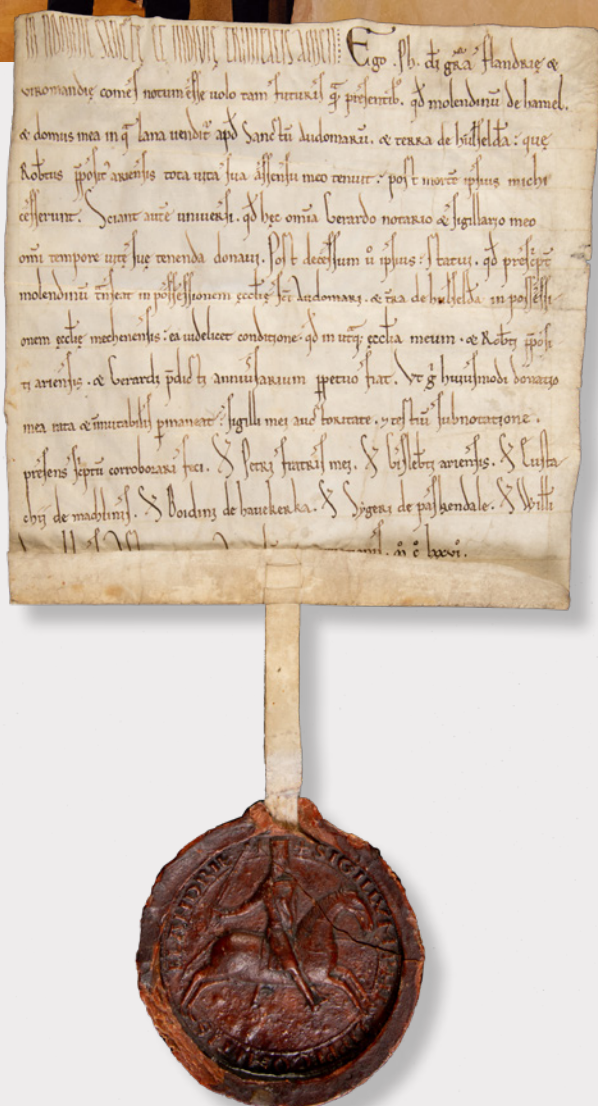 IN NOMINE SANCTE ET INDIVIDUE TRINITATIS AMEN Ego Ph. di grā flandrię &
viromandię comes notum esse uolo tam futuris q̄ presentib. qd molendinū de hamel.
& domus mea in q̄ lana uendit apd Sanctū Audomarū. & terra de hulselda: quę
Robtus ppositꝰ ariensis tota uita sua assensu meo tenuit: post mortē ipsius michi
cesserunt. Sciant autē uniuersi. qd hęc omia Gerardo notario & sigillario meo
omi tempore uitę suę tenenda donaui. Post decessum ū ipsius: statui. qd prescpt
molendinū transeat in possessionem ęcclię sci Audomari. & tra de hulselda in possessi
onem ęcclię mechenensis: ea uidelicet conditione. qd in utq; ęcclia meum. & Robti pposi
ti ariensis. & Gerardi pdicti anniusarium ppetuo fiat. Vt g huiusmodi donatio
mea rata & inmutabilis pmaneat: sigilli mei auctoritate. & testiū subnotatione.
presens scptū corroborari feci. S Petri fratris mei. S Gislebti ariensis. S Eusta
chij de machlinis. S Boidini de hauekerka. S Sygeri de paskendale. S Willi
m̊ c̊ lxxvi.
SIGILLVM